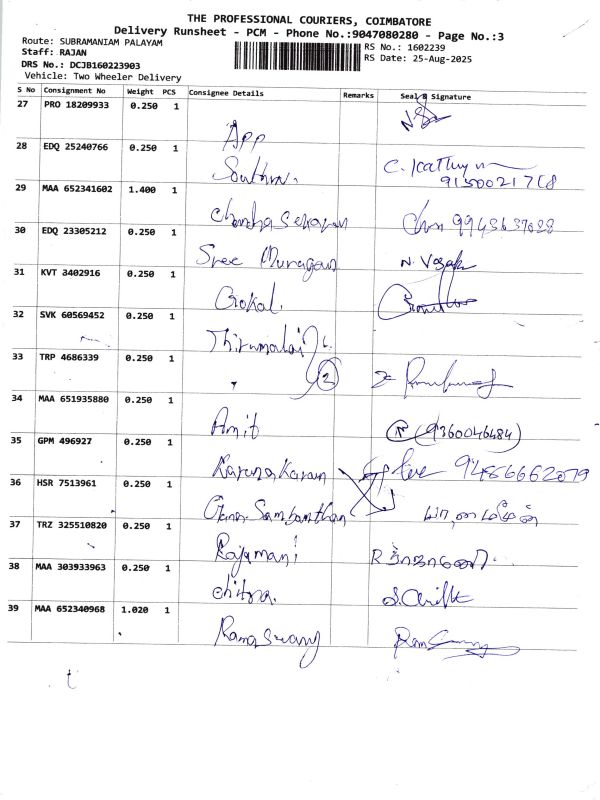 THE PROFESSIONAL COURIERS, COIMBATORE
Delivery Runsheet - PCM - Phone No.:9047080280 - Page No.:3
Route: SUBRAMANIAM PALAYAM
Staff: RAJAN
DRS No.: DCJB160223903
Vehicle: Two Wheeler Delivery
RS No.: 1602239
RS Date: 25-Aug-2025
S No Consignment No Weight PCS Consignee Details Remarks Seal & Signature
27 PRO 18209933 0.250 1
App
28 EDQ 25240766 0.250 1
29 MAA 652341602 1.400 1
Chandrasekaran
30 EDQ 23305212 0.250 1
Sree Murugan
31 KVT 3402916 0.250 1
Gokal
32 SVK 60569452 0.250 1
Thirumalai
33 TRP 4686339 0.250 1
2
34 MAA 651935880 0.250 1
Amit (9360046484)
35 GPM 496927 0.250 1
Karunakaran 9486662079
36 HSR 7513961 0.250 1
Sambanthan
37 TRZ 325510820 0.250 1
Rajamani
38 MAA 303933963 0.250 1
chitra
39 MAA 652340968 1.020 1
Ramaswamy